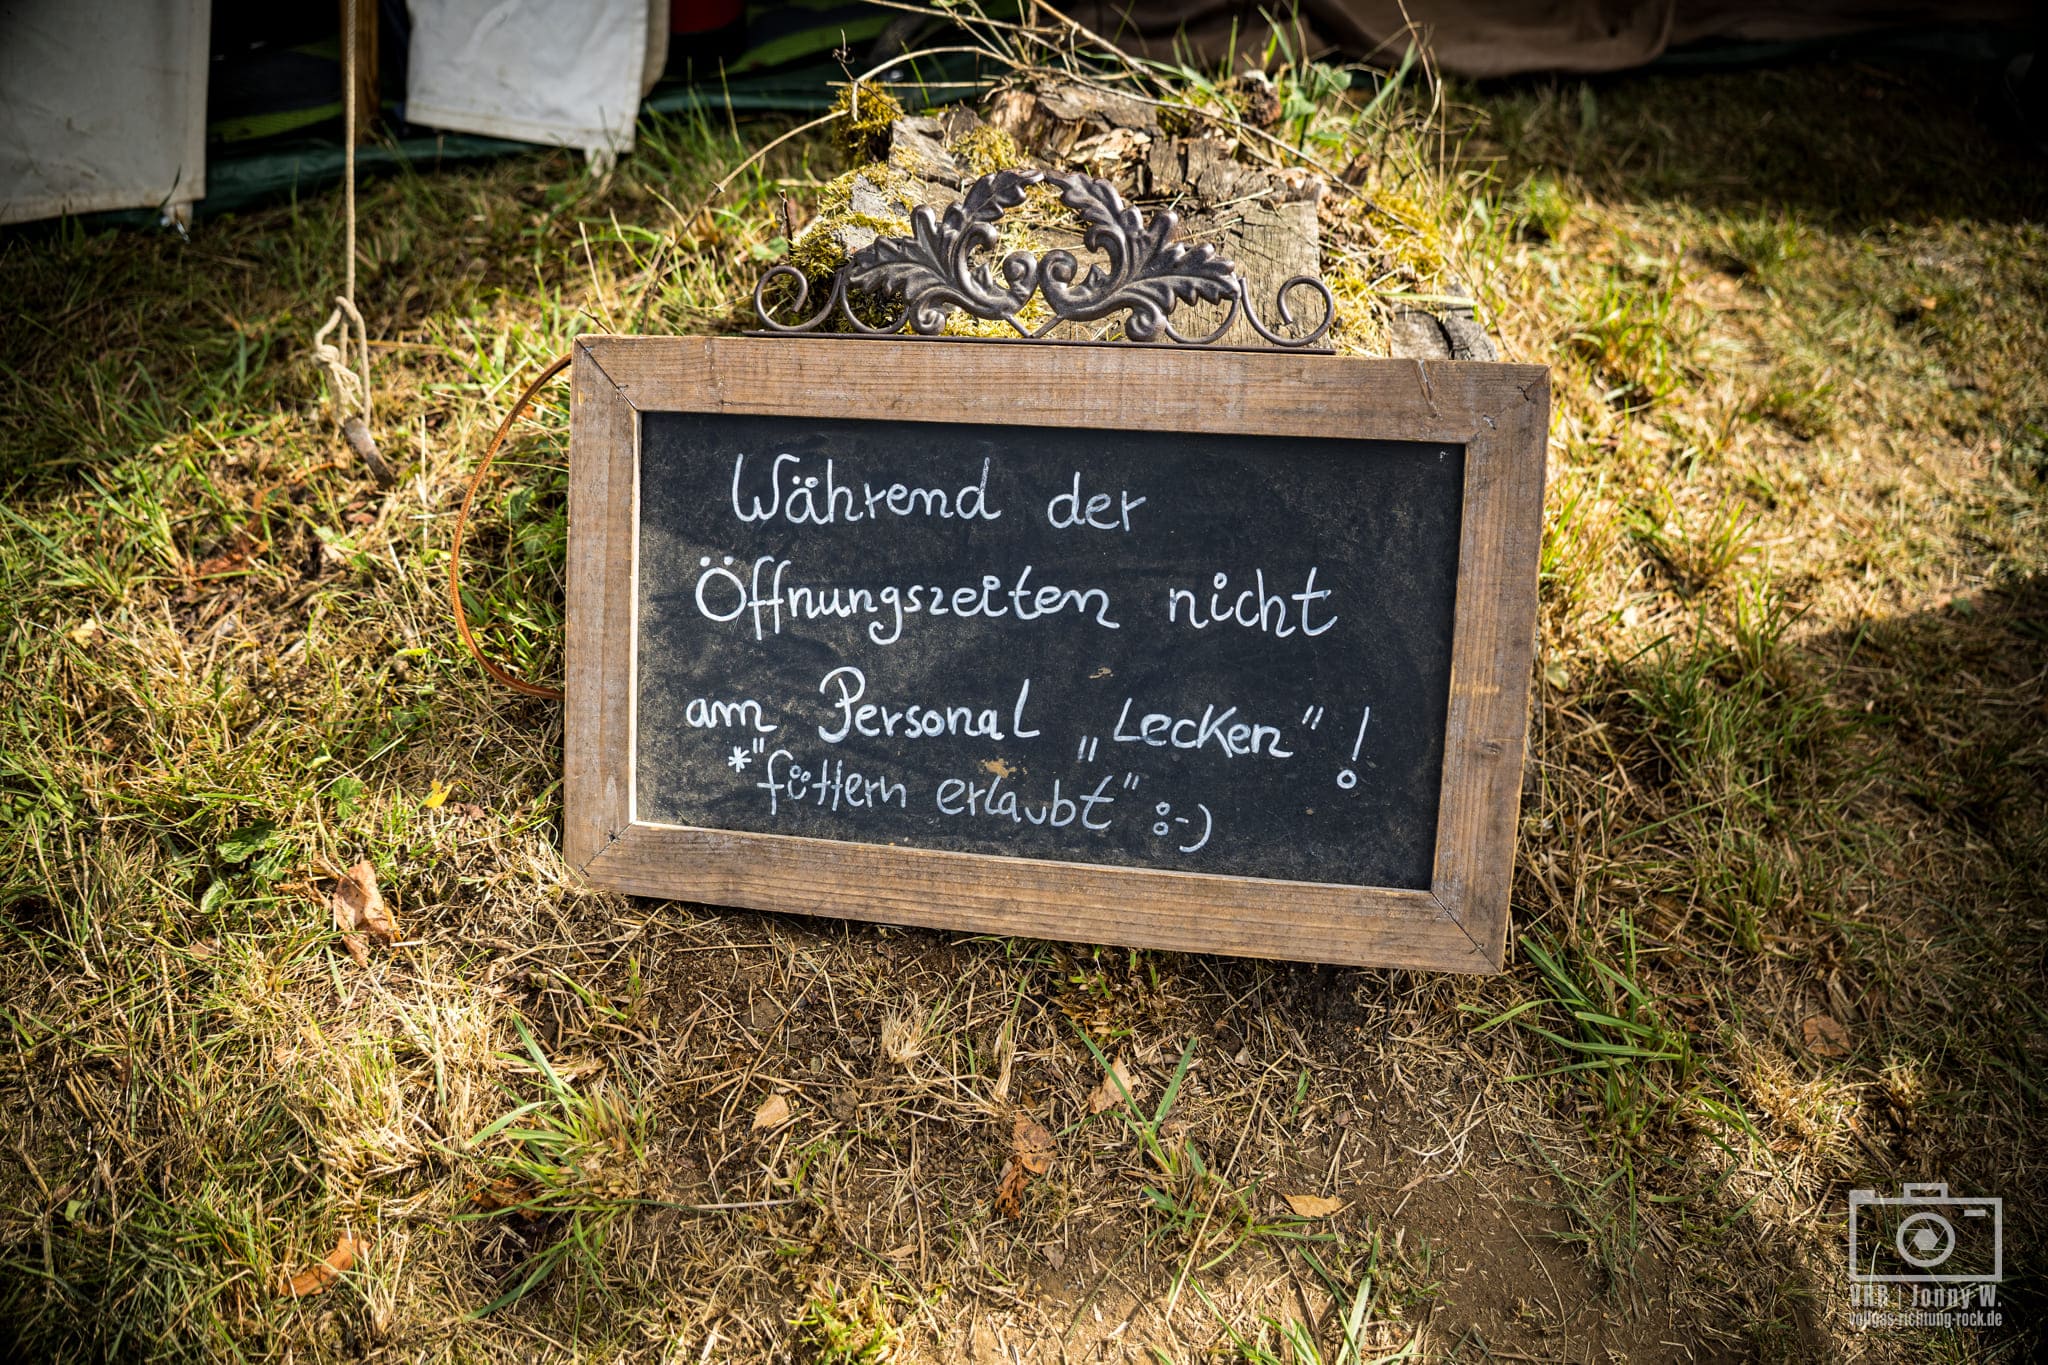 Während der
Öffnungszeiten nicht
am Personal „Lecken“!
*"füttern erlaubt" :-)
VRR | Jonny W.
vollgas-richtung-rock.de